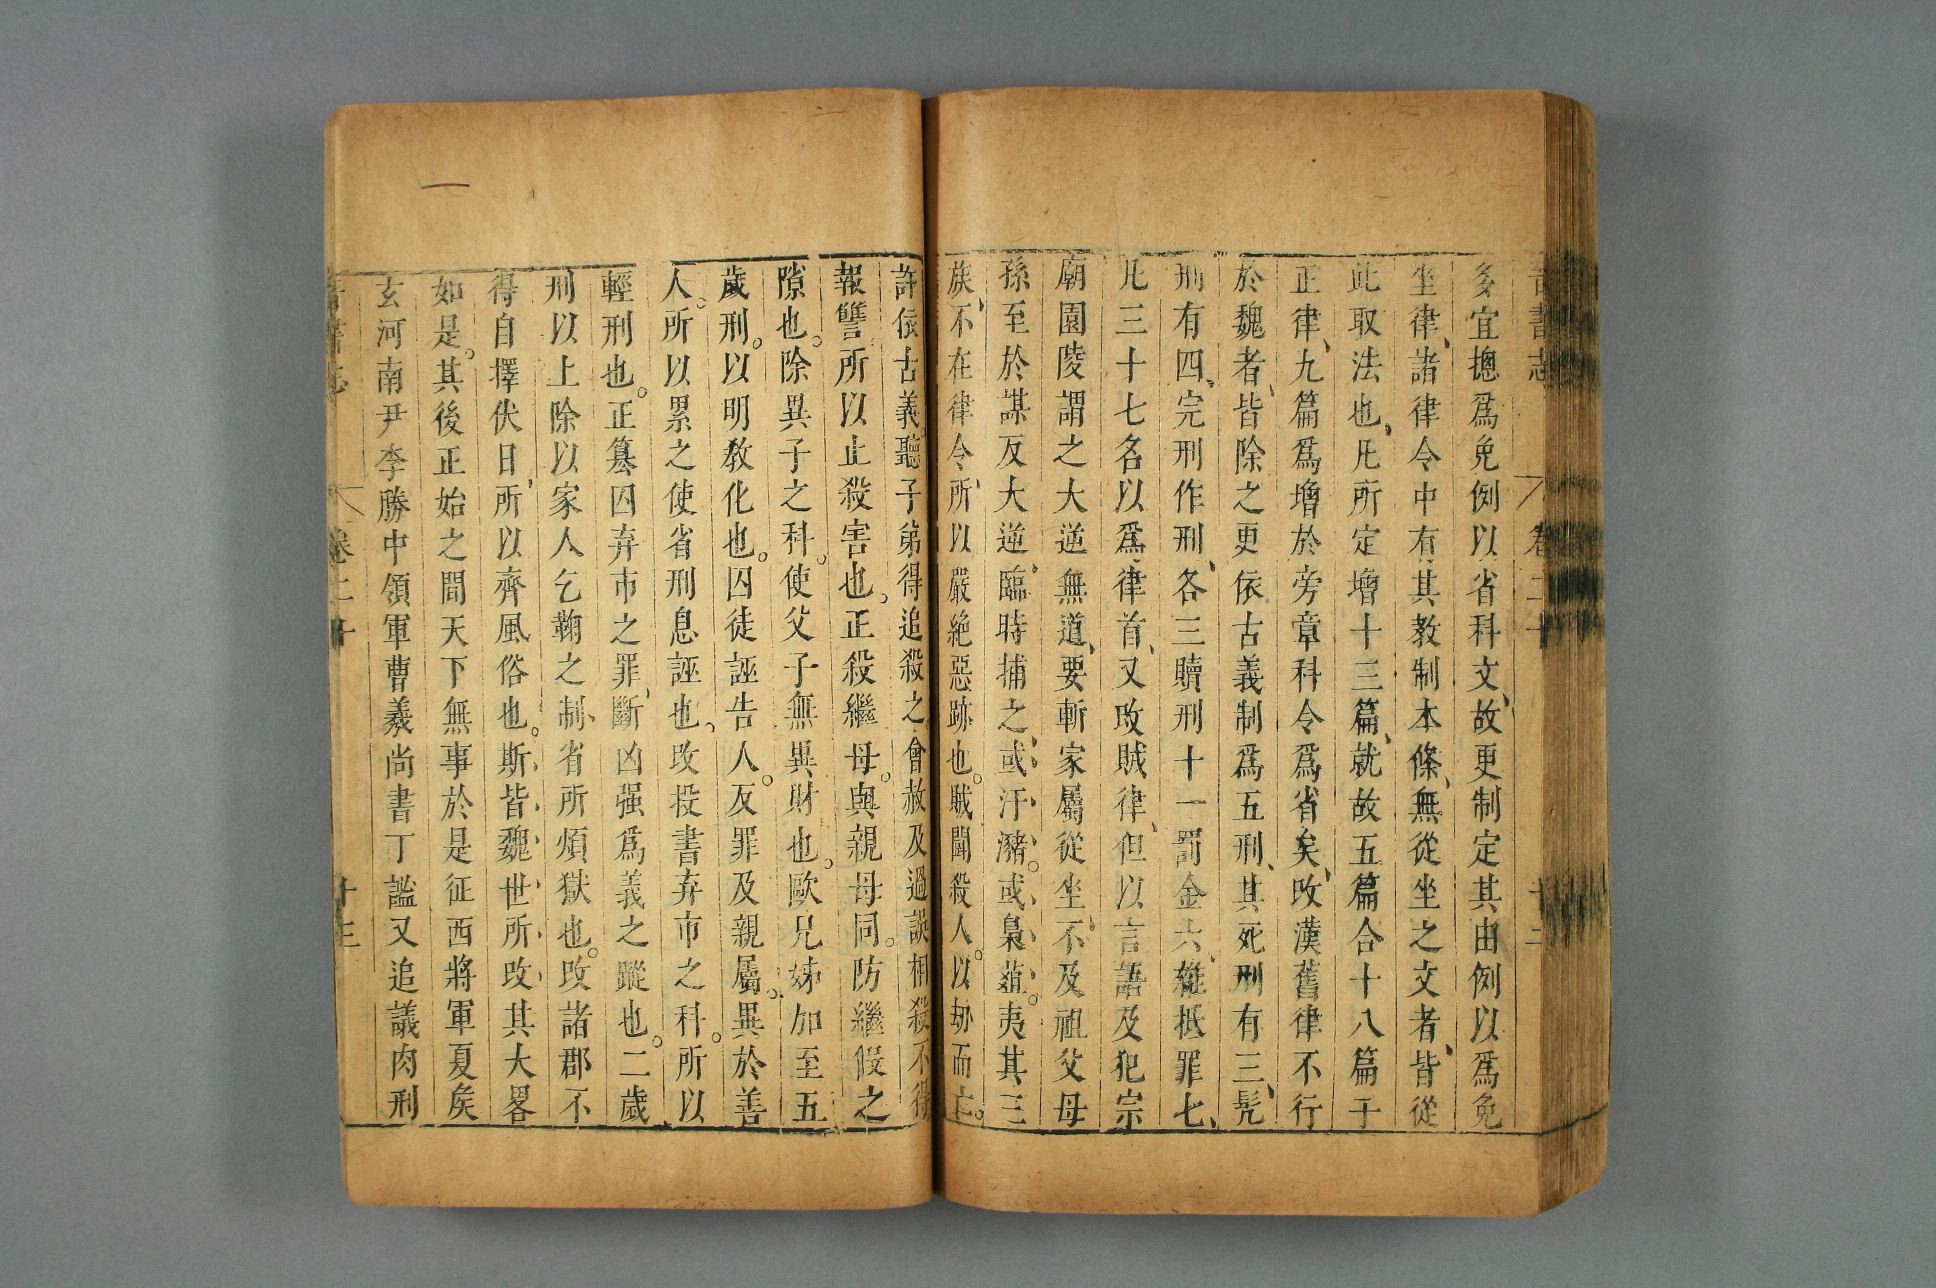 晉書志 卷二十 十二
多宜摠爲免例以省科文故更制定其由例以爲免
坐律諸律令中有其教制本條無從坐之文者皆從
此取法也凡所定增十三篇就故五篇合十八篇于
正律九篇爲增於旁章科令爲省矣攺漢舊律不行
於魏者皆除之更依古義制爲五刑其死刑有三髠
刑有四完刑作刑各三贖刑十一罰金六雜抵罪七
凡三十七名以爲律首又攺賊律但以言語及犯宗
廟園陵謂之大逆無道要斬家屬從坐不及祖父母
孫至於謀反大逆臨時捕之或汙瀦或梟菹夷其三
族不在律令所以嚴絶惡跡也賊鬭殺人以劾而亡
許依古義聽子弟得追殺之會赦及過誤相殺不得
報讐所以止殺害也正殺繼母與親母同防繼假之
隙也除異子之科使父子無異財也歐兄姊加至五
歲刑以明教化也囚徒誣告人反罪及親屬異於善
人所以累之使省刑息誣也攺投書弃市之科所以
輕刑也正篡囚弃市之罪斷凶强爲義之蹤也二歲
刑以上除以家人乞鞠之制省所煩獄也攺諸郡不
得自擇伏日所以齊風俗也斯皆魏世所攺其大畧
如是其後正始之間天下無事於是征西將軍夏矦
玄河南尹李勝中領軍曹羲尚書丁謐又追議肉刑
晉書志 卷二十 十三